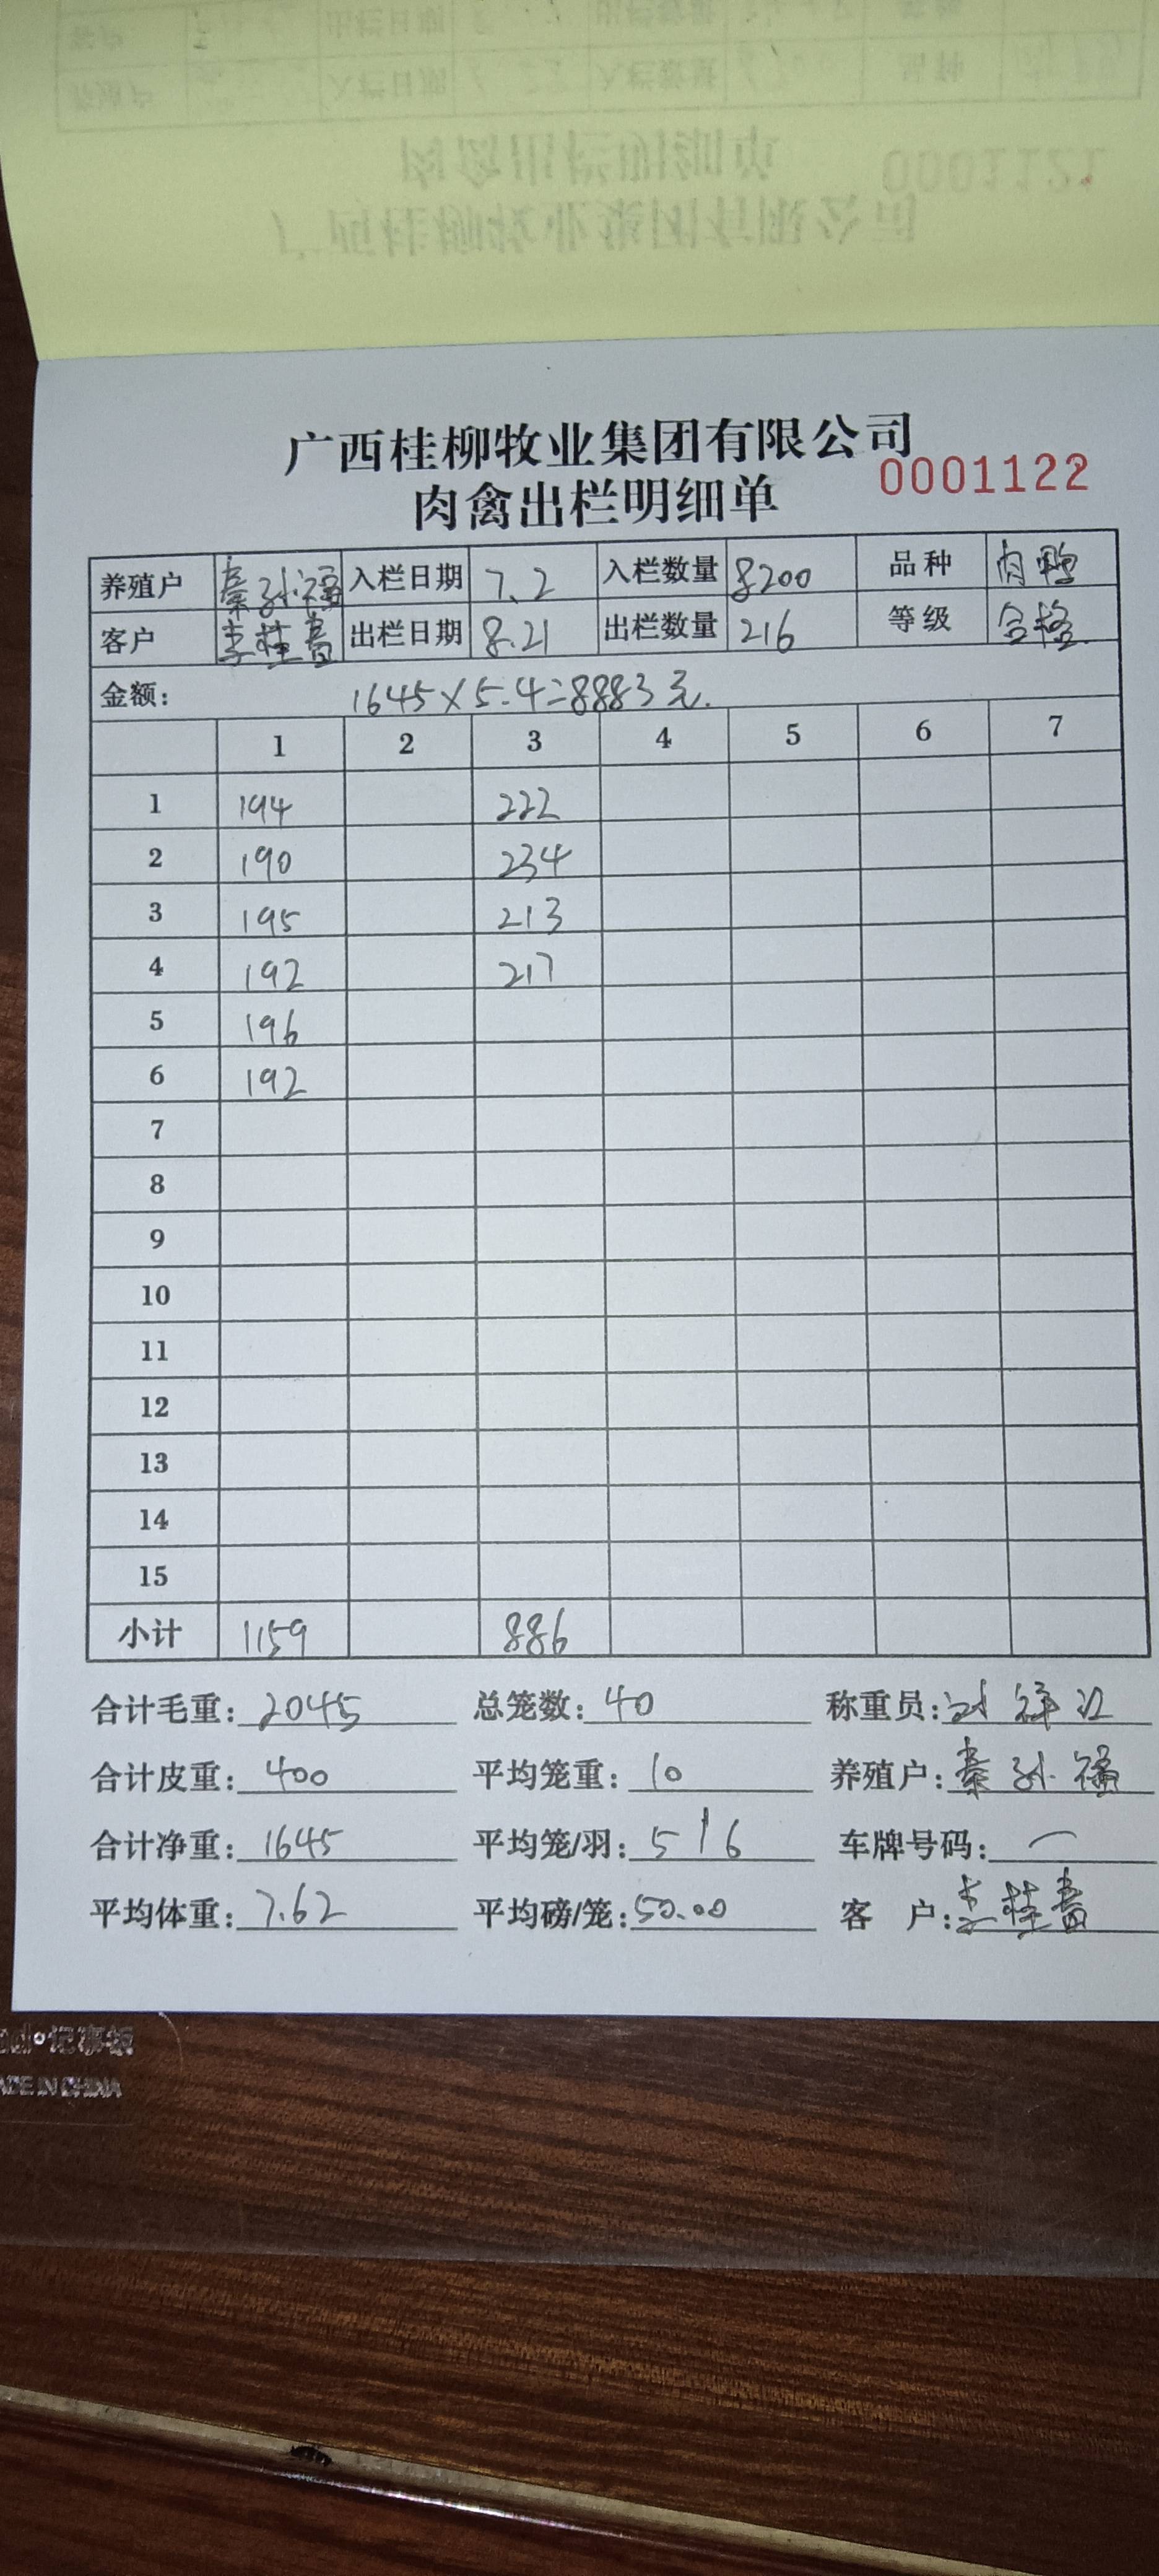 0001121
广西桂柳牧业集团有限公司
肉禽出栏明细单
0001122
养殖户 秦孙福 入栏日期 7.2 入栏数量 8200 品种 肉鸭
客户 李桂 出栏日期 8.21 出栏数量 216 等级 合格
金额: 1645×5.4=8883元.
1 2 3 4 5 6 7
1 194 222
2 190 234
3 195 213
4 192 217
5 196
6 192
7
8
9
10
11
12
13
14
15
小计 1159 886
合计毛重: 2045 总笼数: 40 称重员:
合计皮重: 400 平均笼重: 10 养殖户: 秦孙福
合计净重: 1645 平均笼/羽: 5/6 车牌号码: 一
平均体重: 7.62 平均磅/笼: 50.00 客 户: 桂
记事板
MADE IN CHINA